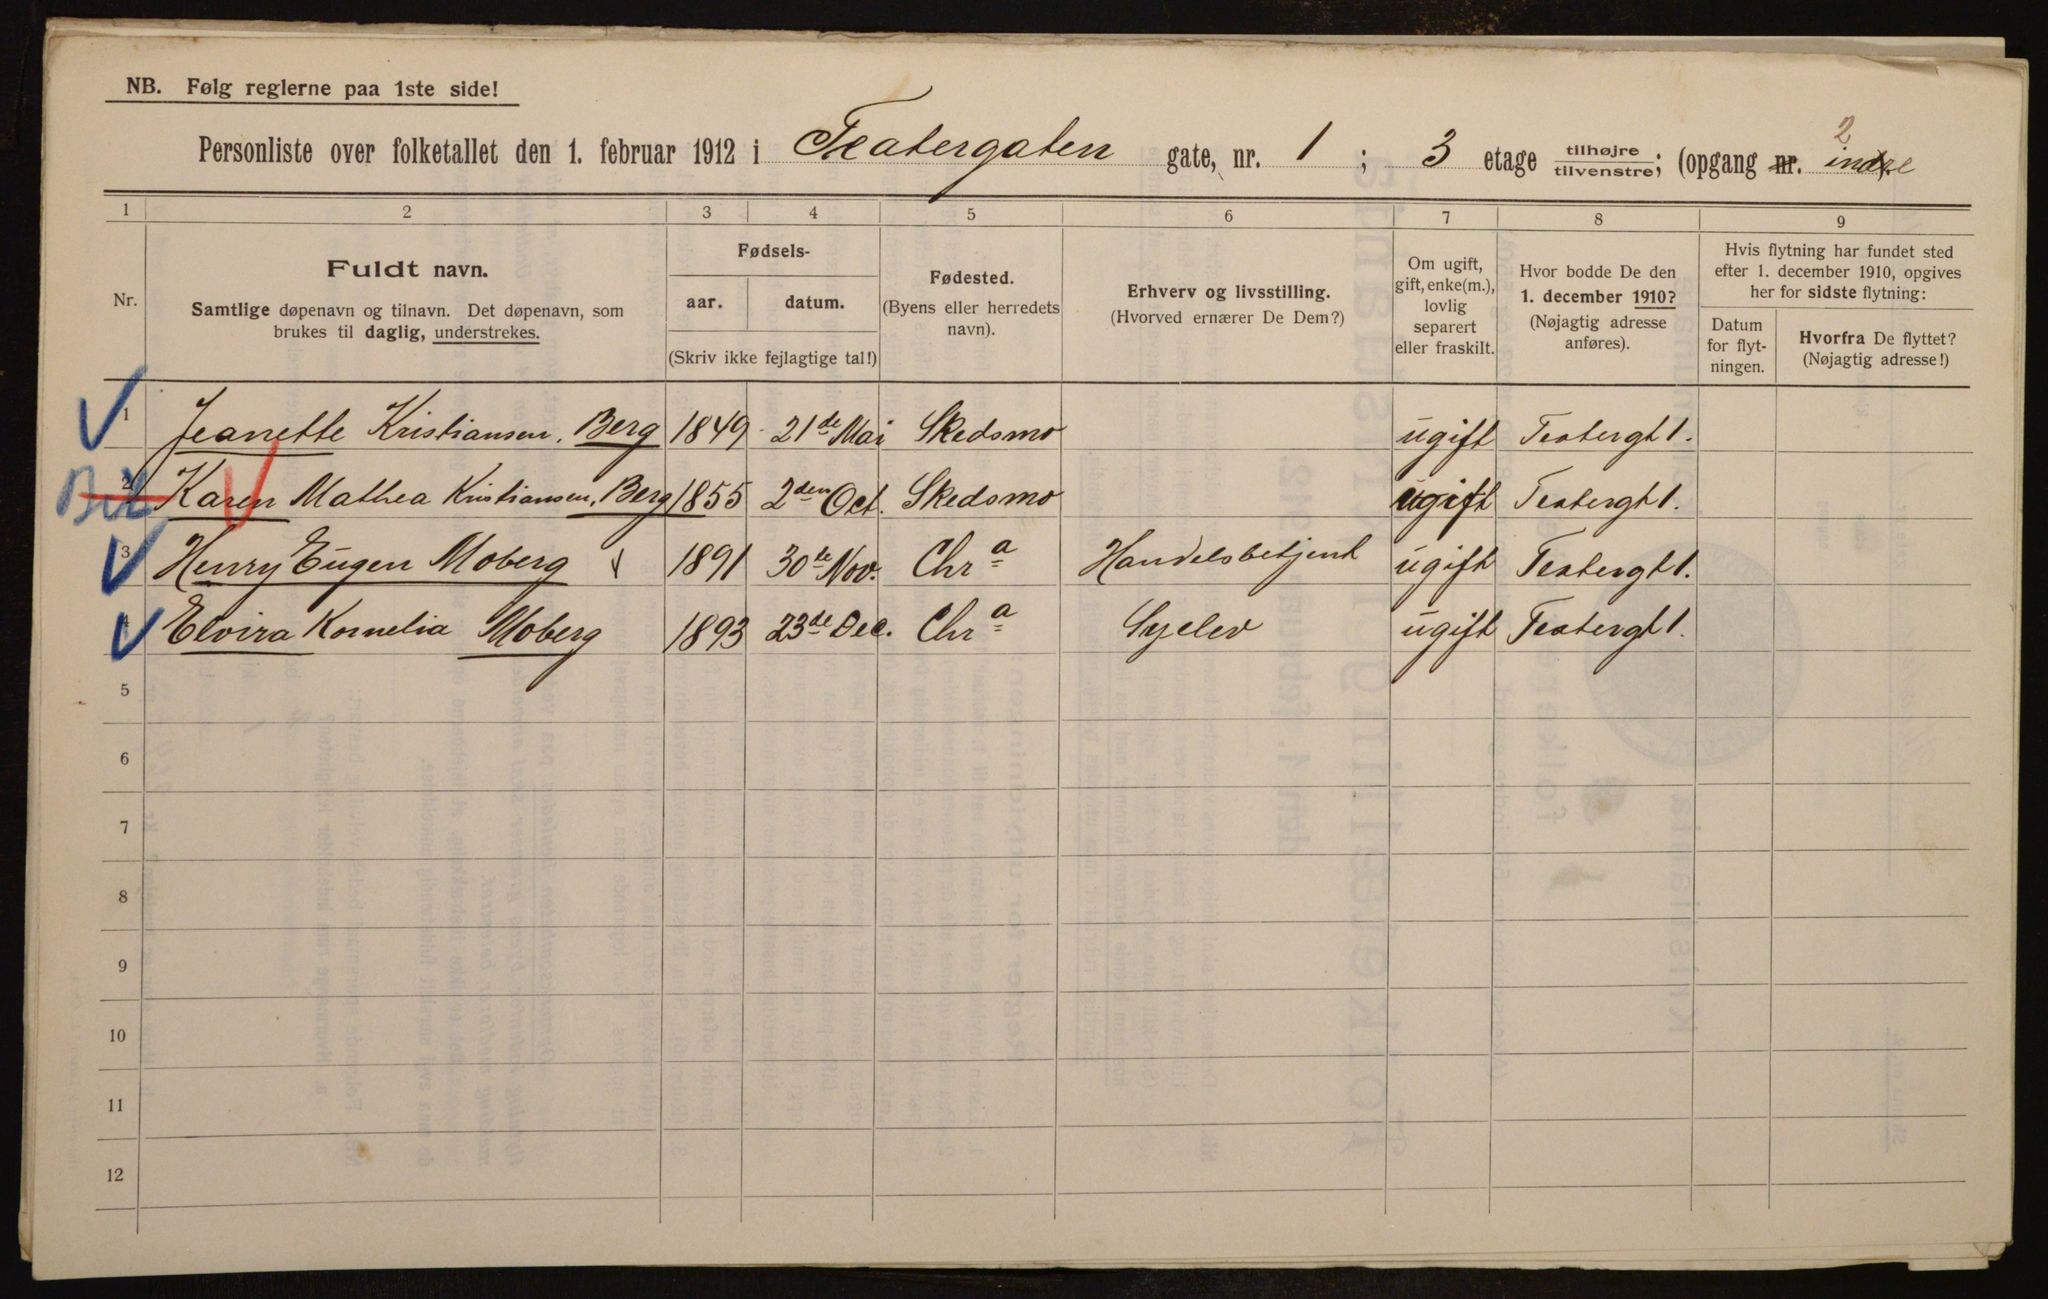 NB. Følg reglerne paa 1ste side!
Personliste over folketallet den 1. februar 1912 i Teatergaten gate, nr. 1 ; 3 etage tilhøjre tilvenstre; (opgang nr. 2 indre
1 2 3 4 5 6 7 8 9
Nr.
Fuldt navn.
Samtlige døpenavn og tilnavn. Det døpenavn, som
brukes til daglig, understrekes.
Fødsels-
aar. datum.
(Skriv ikke fejlagtige tal!)
Fødested.
(Byens eller herredets
navn).
Erhverv og livsstilling.
(Hvorved ernærer De Dem?)
Om ugift,
gift, enke(m.),
lovlig
separert
eller fraskilt.
Hvor bodde De den
1. december 1910?
(Nøjagtig adresse
anføres).
Hvis flytning har fundet sted
efter 1. december 1910, opgives
her for sidste flytning:
Datum
for flyt-
ningen.
Hvorfra De flyttet?
(Nøjagtig adresse!)
1 Jeanette Kristiansen, Berg 1849 21de Mai Skedsmo ugift Teatergt 1.
2 Karen Mathea Kristiansen, Berg 1855 2den Oct. Skedsmo ugift Teatergt 1.
3 Henry Eugen Moberg 1891 30te Nov. Chra Handelsbetjent ugift Teatergt 1.
4 Elvira Kornelia Moberg 1893 23de Dec. Chra Syelev ugift Teatergt 1.
5
6
7
8
9
10
11
12